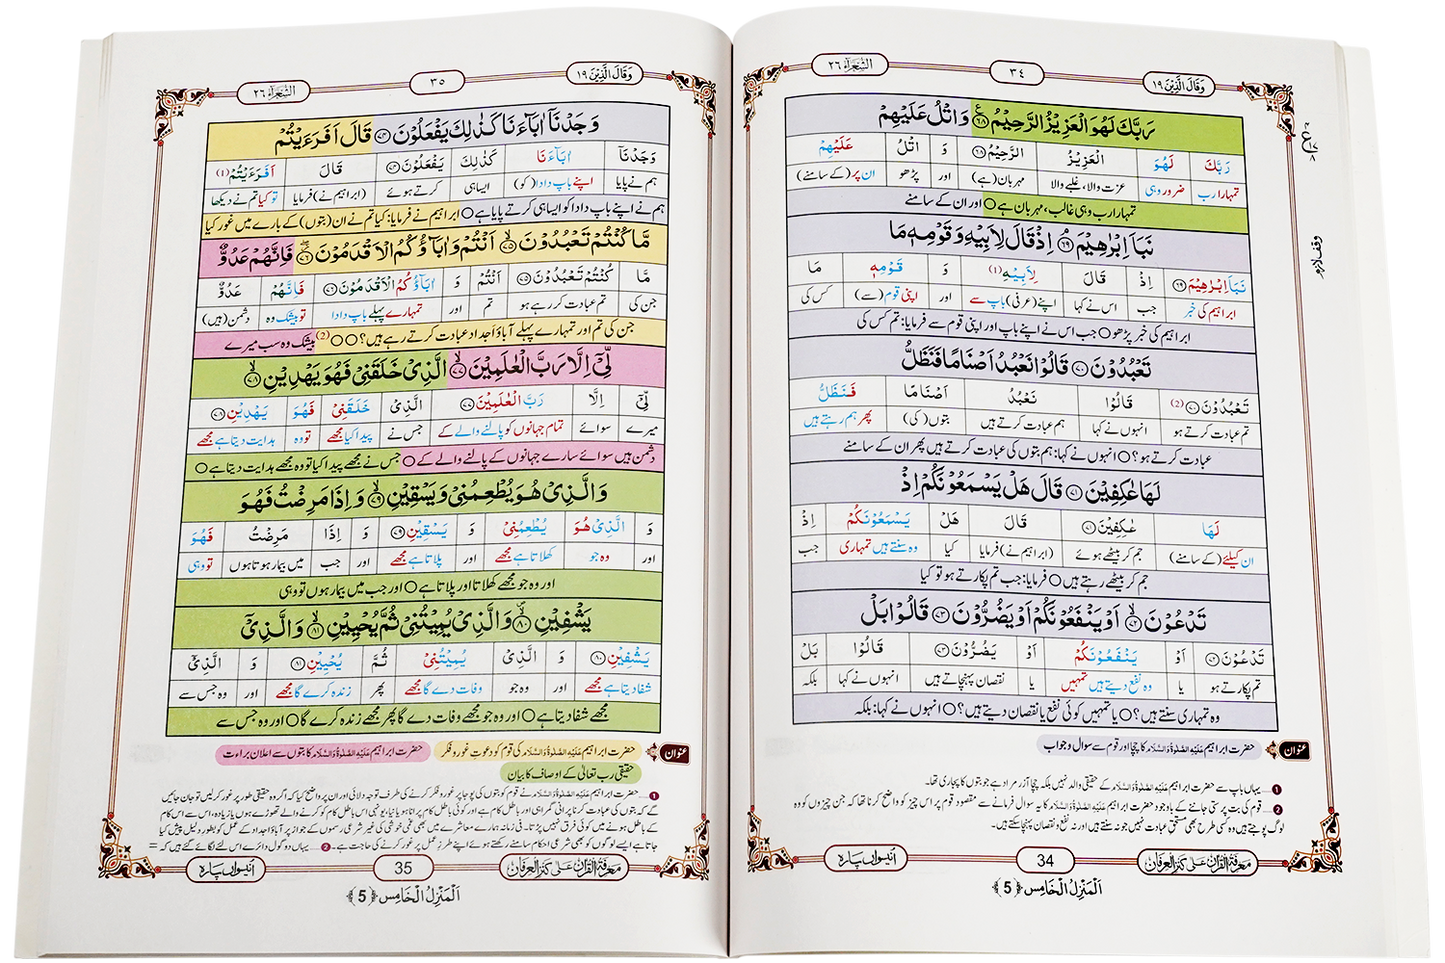 وَقَالَ الَّذِیْنَ ١٩
٣٤
الشُّعَرَآء ٢٦
رَبَّكَ لَهُوَ الْعَزِیْزُ الرَّحِیْمُ ﴿٦٨﴾ وَ اتْلُ عَلَیْهِمْ
رَبَّكَ لَهُوَ الْعَزِیْزُ الرَّحِیْمُ ﴿٦٨﴾ وَ اتْلُ عَلَیْهِمْ
تمہارا رب ضرور وہی عزت والا، غلبے والا مہربان (ہے) اور پڑھو ان پر (کے سامنے)
تمہارا رب وہی غالب، مہربان ہے ○ اور ان کے سامنے
نَبَاَ اِبْرٰهِیْمَ ﴿٦٩﴾ اِذْ قَالَ لِاَبِیْهِ وَ قَوْمِهٖ مَا
نَبَاَ اِبْرٰهِیْمَ ﴿٦٩﴾ اِذْ قَالَ لِاَبِیْهِ (1) وَ قَوْمِهٖ مَا
ابراہیم کی خبر جب اس نے کہا اپنے (عرفی) باپ سے اور اپنی قوم (سے) کس کی
ابراہیم کی خبر پڑھو ○ جب اس نے اپنے باپ اور اپنی قوم سے فرمایا: تم کس کی
تَعْبُدُوْنَ ﴿٧٠﴾ قَالُوْا نَعْبُدُ اَصْنَامًا فَنَظَلُّ
تَعْبُدُوْنَ ﴿٧٠﴾ (2) قَالُوْا نَعْبُدُ اَصْنَامًا فَنَظَلُّ
تم عبادت کرتے ہو انہوں نے کہا ہم عبادت کرتے ہیں بتوں (کی) پھر ہم رہتے ہیں
عبادت کرتے ہو؟ ○ انہوں نے کہا: ہم بتوں کی عبادت کرتے ہیں پھر ان کے سامنے
لَهَا عٰكِفِیْنَ ﴿٧١﴾ قَالَ هَلْ یَسْمَعُوْنَكُمْ اِذْ
لَهَا عٰكِفِیْنَ ﴿٧١﴾ قَالَ هَلْ یَسْمَعُوْنَكُمْ اِذْ
ان کیلئے (کے سامنے) جم کر بیٹھے ہوئے (ابراہیم نے) فرمایا کیا وہ سنتے ہیں تمہاری جب
جم کر بیٹھے رہتے ہیں ○ فرمایا: جب تم پکارتے ہو تو کیا
تَدْعُوْنَ ﴿٧٢﴾ اَوْ یَنْفَعُوْنَكُمْ اَوْ یَضُرُّوْنَ ﴿٧٣﴾ قَالُوْا بَلْ
تَدْعُوْنَ ﴿٧٢﴾ اَوْ یَنْفَعُوْنَكُمْ اَوْ یَضُرُّوْنَ ﴿٧٣﴾ قَالُوْا بَلْ
تم پکارتے ہو یا وہ نفع دیتے ہیں تمہیں یا نقصان پہنچاتے ہیں انہوں نے کہا بلکہ
وہ تمہاری سنتے ہیں؟ ○ یا تمہیں کوئی نفع یا نقصان دیتے ہیں؟ ○ انہوں نے کہا: بلکہ
عنوان حضرت ابراہیم عَلَیْہِ الصَّلٰوۃُ وَالسَّلَام کا چچا اور قوم سے سوال و جواب
1 ... یہاں باپ سے حضرت ابراہیم عَلَیْہِ الصَّلٰوۃُ وَالسَّلَام کے حقیقی والد نہیں بلکہ چچا آزر مراد ہے جو بتوں کا پجاری تھا۔
2 ... قوم کی بت پرستی جاننے کے باوجود حضرت ابراہیم عَلَیْہِ الصَّلٰوۃُ وَالسَّلَام کا یہ سوال فرمانے سے مقصود قوم پر اس چیز کو واضح کرنا تھا کہ جن چیزوں کو وہ
لوگ پوجتے ہیں وہ کسی طرح بھی مستحق عبادت نہیں جو نہ سنتے ہیں اور نہ نفع و نقصان پہنچا سکتے ہیں۔
معرفۃ القرآن علی کنز العرفان
34
انیسواں پارہ
اَلْمَنْزِلُ الْخَامِس ﴿5﴾
وقف لازم
وَقَالَ الَّذِیْنَ ١٩
٣٥
الشُّعَرَآء ٢٦
وَجَدْنَاۤ اٰبَآءَنَا كَذٰلِكَ یَفْعَلُوْنَ ﴿٧٤﴾ قَالَ اَفَرَءَیْتُمْ
وَجَدْنَاۤ اٰبَآءَنَا كَذٰلِكَ یَفْعَلُوْنَ ﴿٧٤﴾ قَالَ اَفَرَءَیْتُمْ (1)
ہم نے پایا اپنے باپ دادا (کو) ایسا ہی کرتے ہوئے (ابراہیم نے) فرمایا تو کیا تم نے دیکھا
ہم نے اپنے باپ دادا کو ایسا ہی کرتے پایا ہے ○ ابراہیم نے فرمایا: کیا تم نے ان (بتوں) کے بارے میں غور کیا
مَّا كُنْتُمْ تَعْبُدُوْنَ ﴿٧٥﴾ اَنْتُمْ وَ اٰبَآؤُكُمُ الْاَقْدَمُوْنَ ﴿٧٦﴾ فَاِنَّهُمْ عَدُوٌّ
مَّا كُنْتُمْ تَعْبُدُوْنَ ﴿٧٥﴾ اَنْتُمْ وَ اٰبَآؤُكُمُ الْاَقْدَمُوْنَ ﴿٧٦﴾ فَاِنَّهُمْ عَدُوٌّ
جن کی تم عبادت کر رہے ہو تم اور تمہارے پہلے باپ دادا تو بیشک وہ دشمن (ہیں)
جن کی تم اور تمہارے پہلے آباؤ اَجداد عبادت کرتے رہے ہیں؟ ○ ○ (2) بیشک وہ سب میرے
لِّیْۤ اِلَّا رَبَّ الْعٰلَمِیْنَ ﴿٧٧﴾ الَّذِیْ خَلَقَنِیْ فَهُوَ یَهْدِیْنِ ﴿٧٨﴾
لِّیْۤ اِلَّا رَبَّ الْعٰلَمِیْنَ ﴿٧٧﴾ الَّذِیْ خَلَقَنِیْ فَهُوَ یَهْدِیْنِ ﴿٧٨﴾
میرے سوائے تمام جہانوں کو پالنے والے کے جس نے پیدا کیا مجھے تو وہ ہدایت دیتا ہے مجھے
دشمن ہیں سوائے سارے جہانوں کے پالنے والے کے ○ جس نے مجھے پیدا کیا تو وہ مجھے ہدایت دیتا ہے ○
وَ الَّذِیْ هُوَ یُطْعِمُنِیْ وَ یَسْقِیْنِ ﴿٧٩﴾ وَ اِذَا مَرِضْتُ فَهُوَ
وَ الَّذِیْ هُوَ یُطْعِمُنِیْ وَ یَسْقِیْنِ ﴿٧٩﴾ وَ اِذَا مَرِضْتُ فَهُوَ
اور وہ جو کھلاتا ہے مجھے اور پلاتا ہے مجھے اور جب میں بیمار ہوتا ہوں تو وہی
اور وہ جو مجھے کھلاتا اور پلاتا ہے ○ اور جب میں بیمار ہوں تو وہی
یَشْفِیْنِ ﴿٨٠﴾ وَ الَّذِیْ یُمِیْتُنِیْ ثُمَّ یُحْیِیْنِ ﴿٨١﴾ وَ الَّذِیْۤ
یَشْفِیْنِ ﴿٨٠﴾ وَ الَّذِیْ یُمِیْتُنِیْ ثُمَّ یُحْیِیْنِ ﴿٨١﴾ وَ الَّذِیْۤ
شفا دیتا ہے مجھے اور وہ جو وفات دے گا مجھے پھر زندہ کرے گا مجھے اور وہ جس سے
مجھے شفا دیتا ہے ○ اور وہ جو مجھے وفات دے گا پھر مجھے زندہ کرے گا ○ اور وہ جس سے
عنوان حضرت ابراہیم عَلَیْہِ الصَّلٰوۃُ وَالسَّلَام کی قوم کو دعوتِ غور و فکر حضرت ابراہیم عَلَیْہِ الصَّلٰوۃُ وَالسَّلَام کا بتوں سے اعلانِ براءت
حقیقی رب تعالیٰ کے اوصاف کا بیان
1 ... حضرت ابراہیم عَلَیْہِ الصَّلٰوۃُ وَالسَّلَام نے قوم کو بتوں کی پوجا پر غور و فکر کرنے کی طرف توجہ دلائی اور ان پر واضح کیا کہ اگر وہ حقیقی طور پر غور کر لیں تو جان جائیں
گے کہ بتوں کی عبادت کرنا پرانی گمراہی اور باطل کام ہے اور کوئی باطل کام پرانا ہو یا نیا، یونہی اس باطل کام کو کرنے والے تھوڑے ہوں یا زیادہ، اس سے اس کام
کے باطل ہونے میں کوئی فرق نہیں پڑتا۔ فی زمانہ ہمارے معاشرے میں بھی غمی خوشی کی غیر شرعی رسموں کے جواز پر آباؤ اجداد کے عمل کو بطورِ دلیل پیش کیا
جاتا ہے ایسے لوگوں کو بھی شرعی احکام سامنے رکھتے ہوئے اپنے طرزِ عمل پر غور کرنے کی حاجت ہے۔ 2 ... یہاں دو گول دائرے اس لئے لگائے گئے ہیں کہ =
معرفۃ القرآن علی کنز العرفان
35
انیسواں پارہ
اَلْمَنْزِلُ الْخَامِس ﴿5﴾